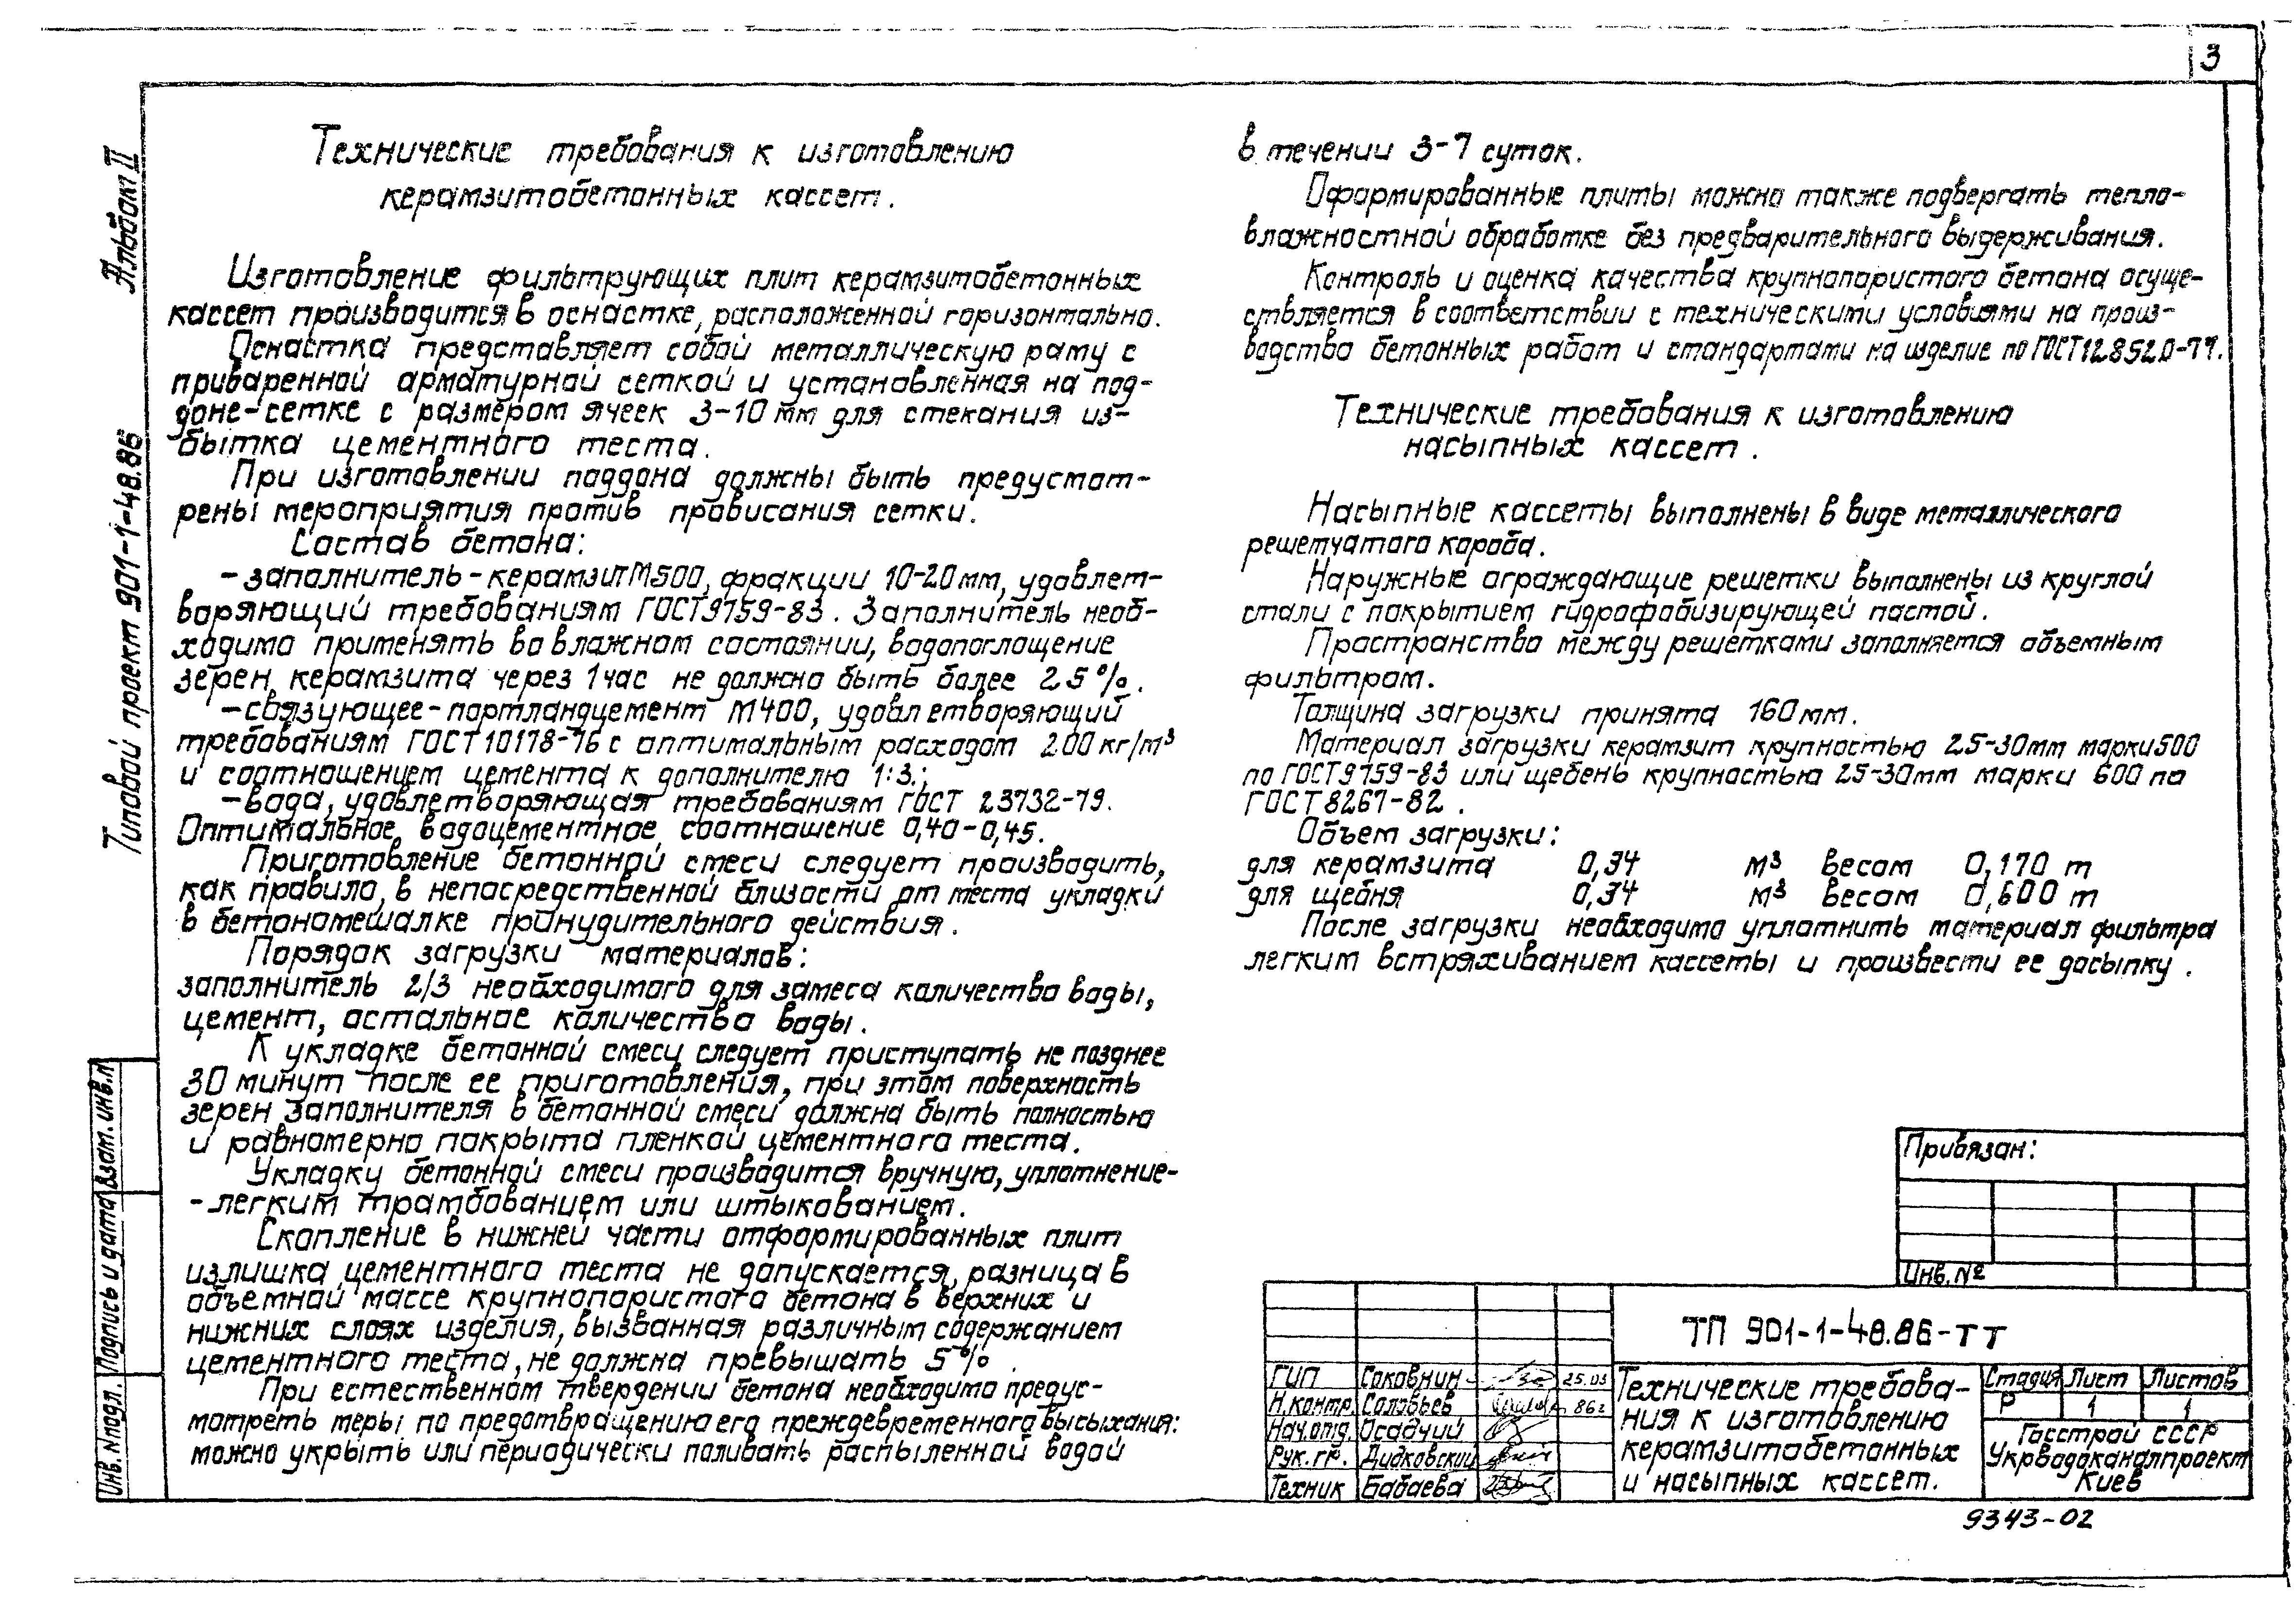 3
Альбом II
Типовой проект 901-1-48.86
Технические требования к изготовлению
керамзитобетонных кассет.
Изготовление фильтрующих плит керамзитобетонных
кассет производится в оснастке, расположенной горизонтально.
Оснастка представляет собой металлическую раму с
приваренной арматурной сеткой и установленная на под-
доне-сетке с размером ячеек 3-10 мм для стекания из-
бытка цементного теста.
При изготовлении поддона должны быть предусмот-
рены мероприятия против провисания сетки.
Состав бетона:
- заполнитель - керамзит М500, фракции 10-20 мм, удовлет-
воряющий требованиям ГОСТ 9759-83. Заполнитель необ-
ходимо применять во влажном состоянии, водопоглощение
зерен керамзита через 1 час не должно быть более 25%.
- связующее - портландцемент М400, удовлетворяющий
требованиям ГОСТ 10178-76 с оптимальным расходом 200 кг/м³
и соотношением цемента к дополнителю 1:3.;
- вода, удовлетворяющая требованиям ГОСТ 23732-79.
Оптимальное водоцементное соотношение 0,40-0,45.
Приготовление бетонной смеси следует производить,
как правило, в непосредственной близости от места укладки
в бетономешалке принудительного действия.
Порядок загрузки материалов:
заполнитель 2/3 необходимого для замеса количества воды,
цемент, остальное количество воды.
К укладке бетонной смеси следует приступать не позднее
30 минут после ее приготовления, при этом поверхность
зерен заполнителя в бетонной смеси должна быть полностью
и равномерно покрыта пленкой цементного теста.
Укладку бетонной смеси производится вручную, уплотнение-
-легким трамбованием или штыкованием.
Скопление в нижней части отформированных плит
излишка цементного теста не допускается, разница в
объемной массе крупнопористого бетона в верхних и
нижних слоях изделия, вызванная различным содержанием
цементного теста, не должна превышать 5%.
При естественном твердении бетона необходимо предус-
мотреть меры по предотвращению его преждевременного высыхания:
можно укрыть или периодически поливать распыленной водой
в течении 3-7 суток.
Оформированные плиты можно также подвергать тепло-
влажностной обработке без предварительного выдерживания.
Контроль и оценка качества крупнопористого бетона осуще-
ствляется в соответствии с техническими условиями на произ-
водство бетонных работ и стандартами на изделие по ГОСТ 12852.0-77.
Технические требования к изготовлению
насыпных кассет.
Насыпные кассеты выполнены в виде металлического
решетчатого короба.
Наружные ограждающие решетки выполнены из круглой
стали с покрытием гидрофобизирующей пастой.
Пространство между решетками заполняется объемным
фильтром.
Толщина загрузки принята 160 мм.
Материал загрузки керамзит крупностью 25-30мм марки 500
по ГОСТ 9759-83 или щебень крупностью 25-30мм марки 600 по
ГОСТ 8267-82.
Объем загрузки:
для керамзита 0,34 м³ весом 0,170 т
для щебня 0,34 м³ весом 0,600 т
После загрузки необходимо уплотнить материал фильтра
легким встряхиванием кассеты и произвести ее досыпку.
Взам. инв. №
Подпись и дата
Инв. № подл.
Привязан:
Инв. №
ТП 901-1-48.86-ТТ
ГИП Соковнин 25.03
Н.контр. Соловьев 86г
Нач.отд. Осадчий
Рук.гр. Дидковский
Техник Бабаева
Технические требова-
ния к изготовлению
керамзитобетонных
и насыпных кассет.
Стадия Лист Листов
Р 1 1
Госстрой СССР
Укрводоканалпроект
Киев
9343-02